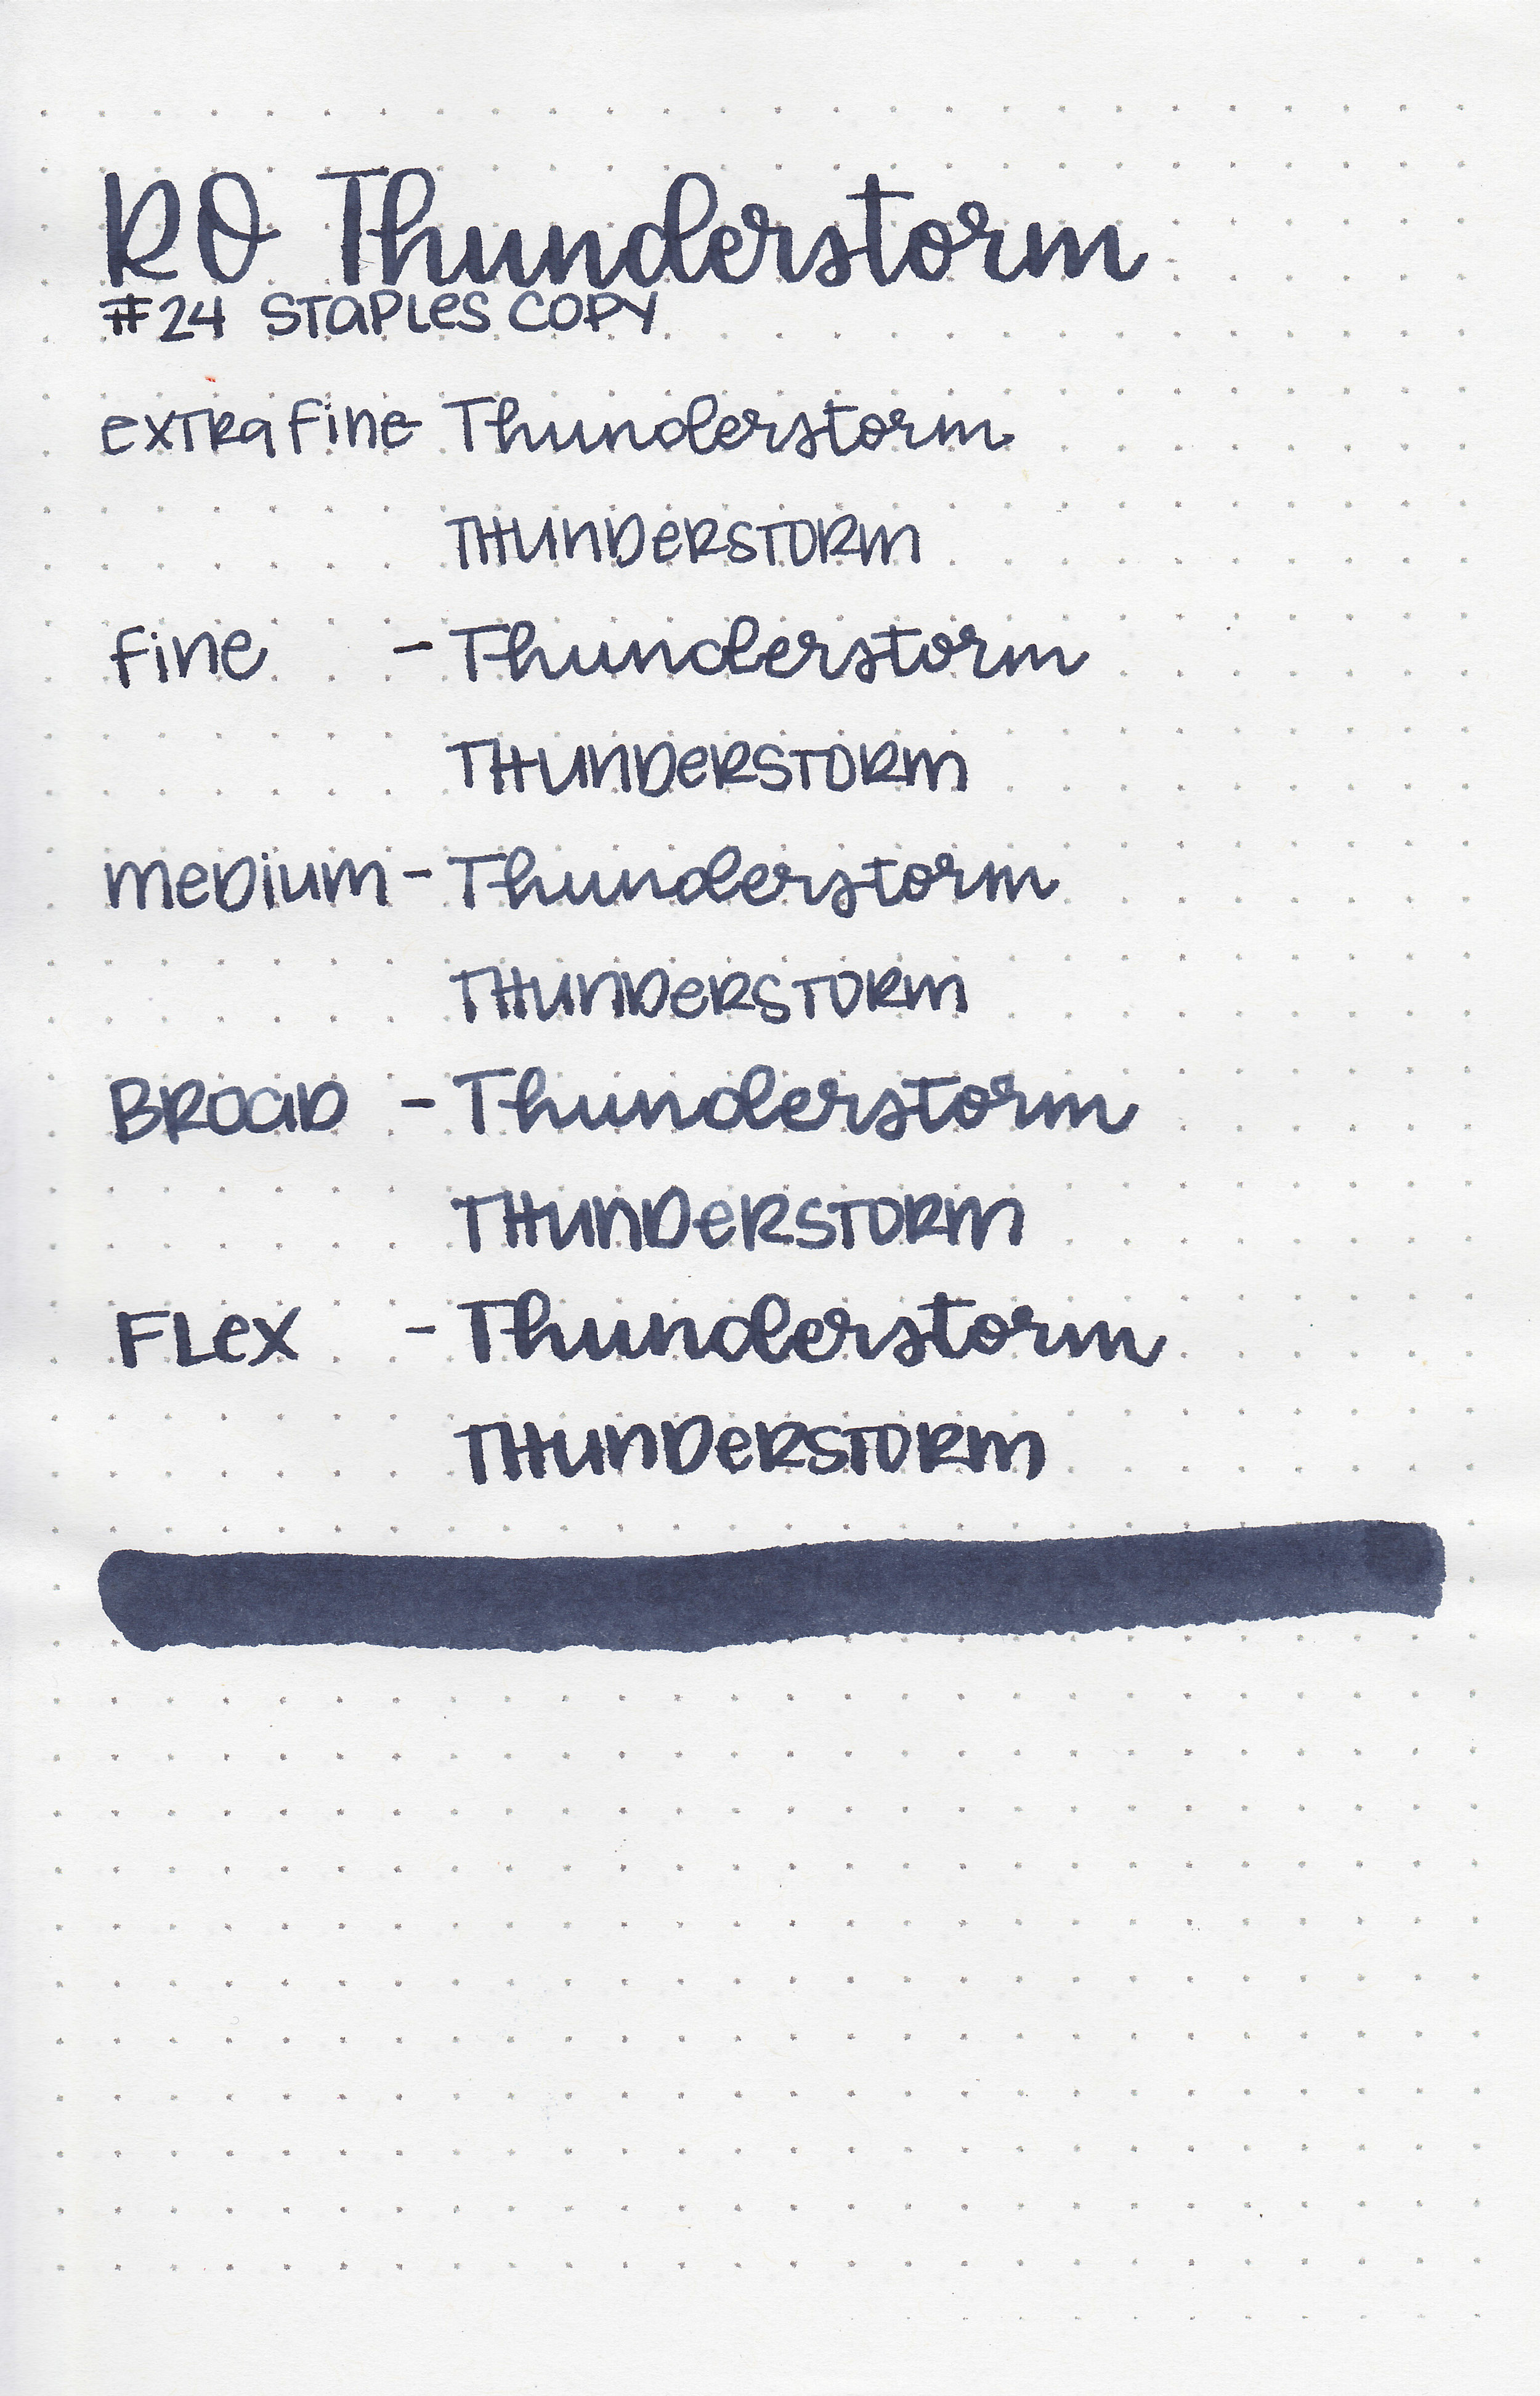 RO Thunderstorm
#24 STaPLes COPY
exTRa Fine Thunderstorm
THUnDeRSTORm
Fine - Thunderstorm
THUnDeRSTORm
meDium - Thunderstorm
THUnDeRSTORm
BROaD - Thunderstorm
THUnDeRSTORm
FLex - Thunderstorm
THUnDeRSTORm